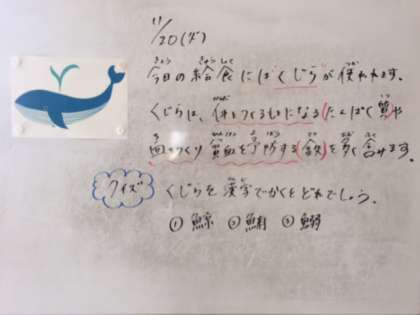 11/20(火)
今日の給食にはくじらが使われます。
くじらは、体をつくるもとになる(たんぱく質)や
血をつくり貧血を予防する(鉄)を多く含みます。
クイズ くじらを漢字でかくとどれでしょう。
①鯨 ② ③鰯